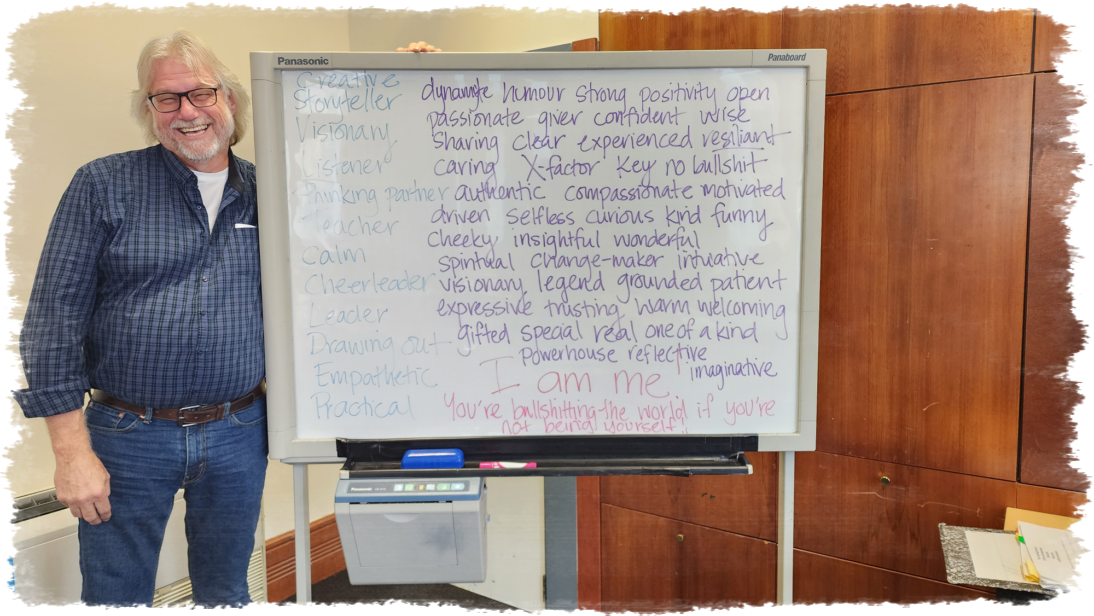 Panasonic
Panaboard
Creative
Storyteller
Visionary
Listener
Thinking partner
Teacher
Calm
Cheerleader
Leader
Drawing out
Empathetic
Practical
dynamite humour strong positivity open
passionate giver confident wise
sharing clear experienced resiliant
caring X-factor Key no bullshit
authentic compassionate motivated
driven selfless curious kind funny
cheeky insightful wonderful
spiritual change-maker intuative
visionary legend grounded patient
expressive trusting warm welcoming
gifted special real one of a kind
powerhouse reflective
imaginative
I am me!
You're bullshitting the world if you're
not being yourself!
Panasonic